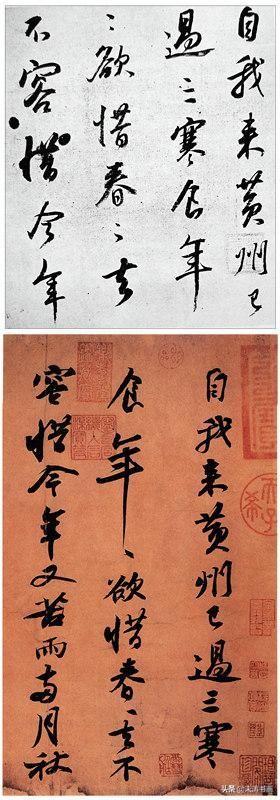 自我来黄州已
過三寒食年
〻欲惜春〻去
不容惜今年
自我来黄州已過三寒
食年〻欲惜春〻去不
容惜今年又苦雨兩月秋
头条